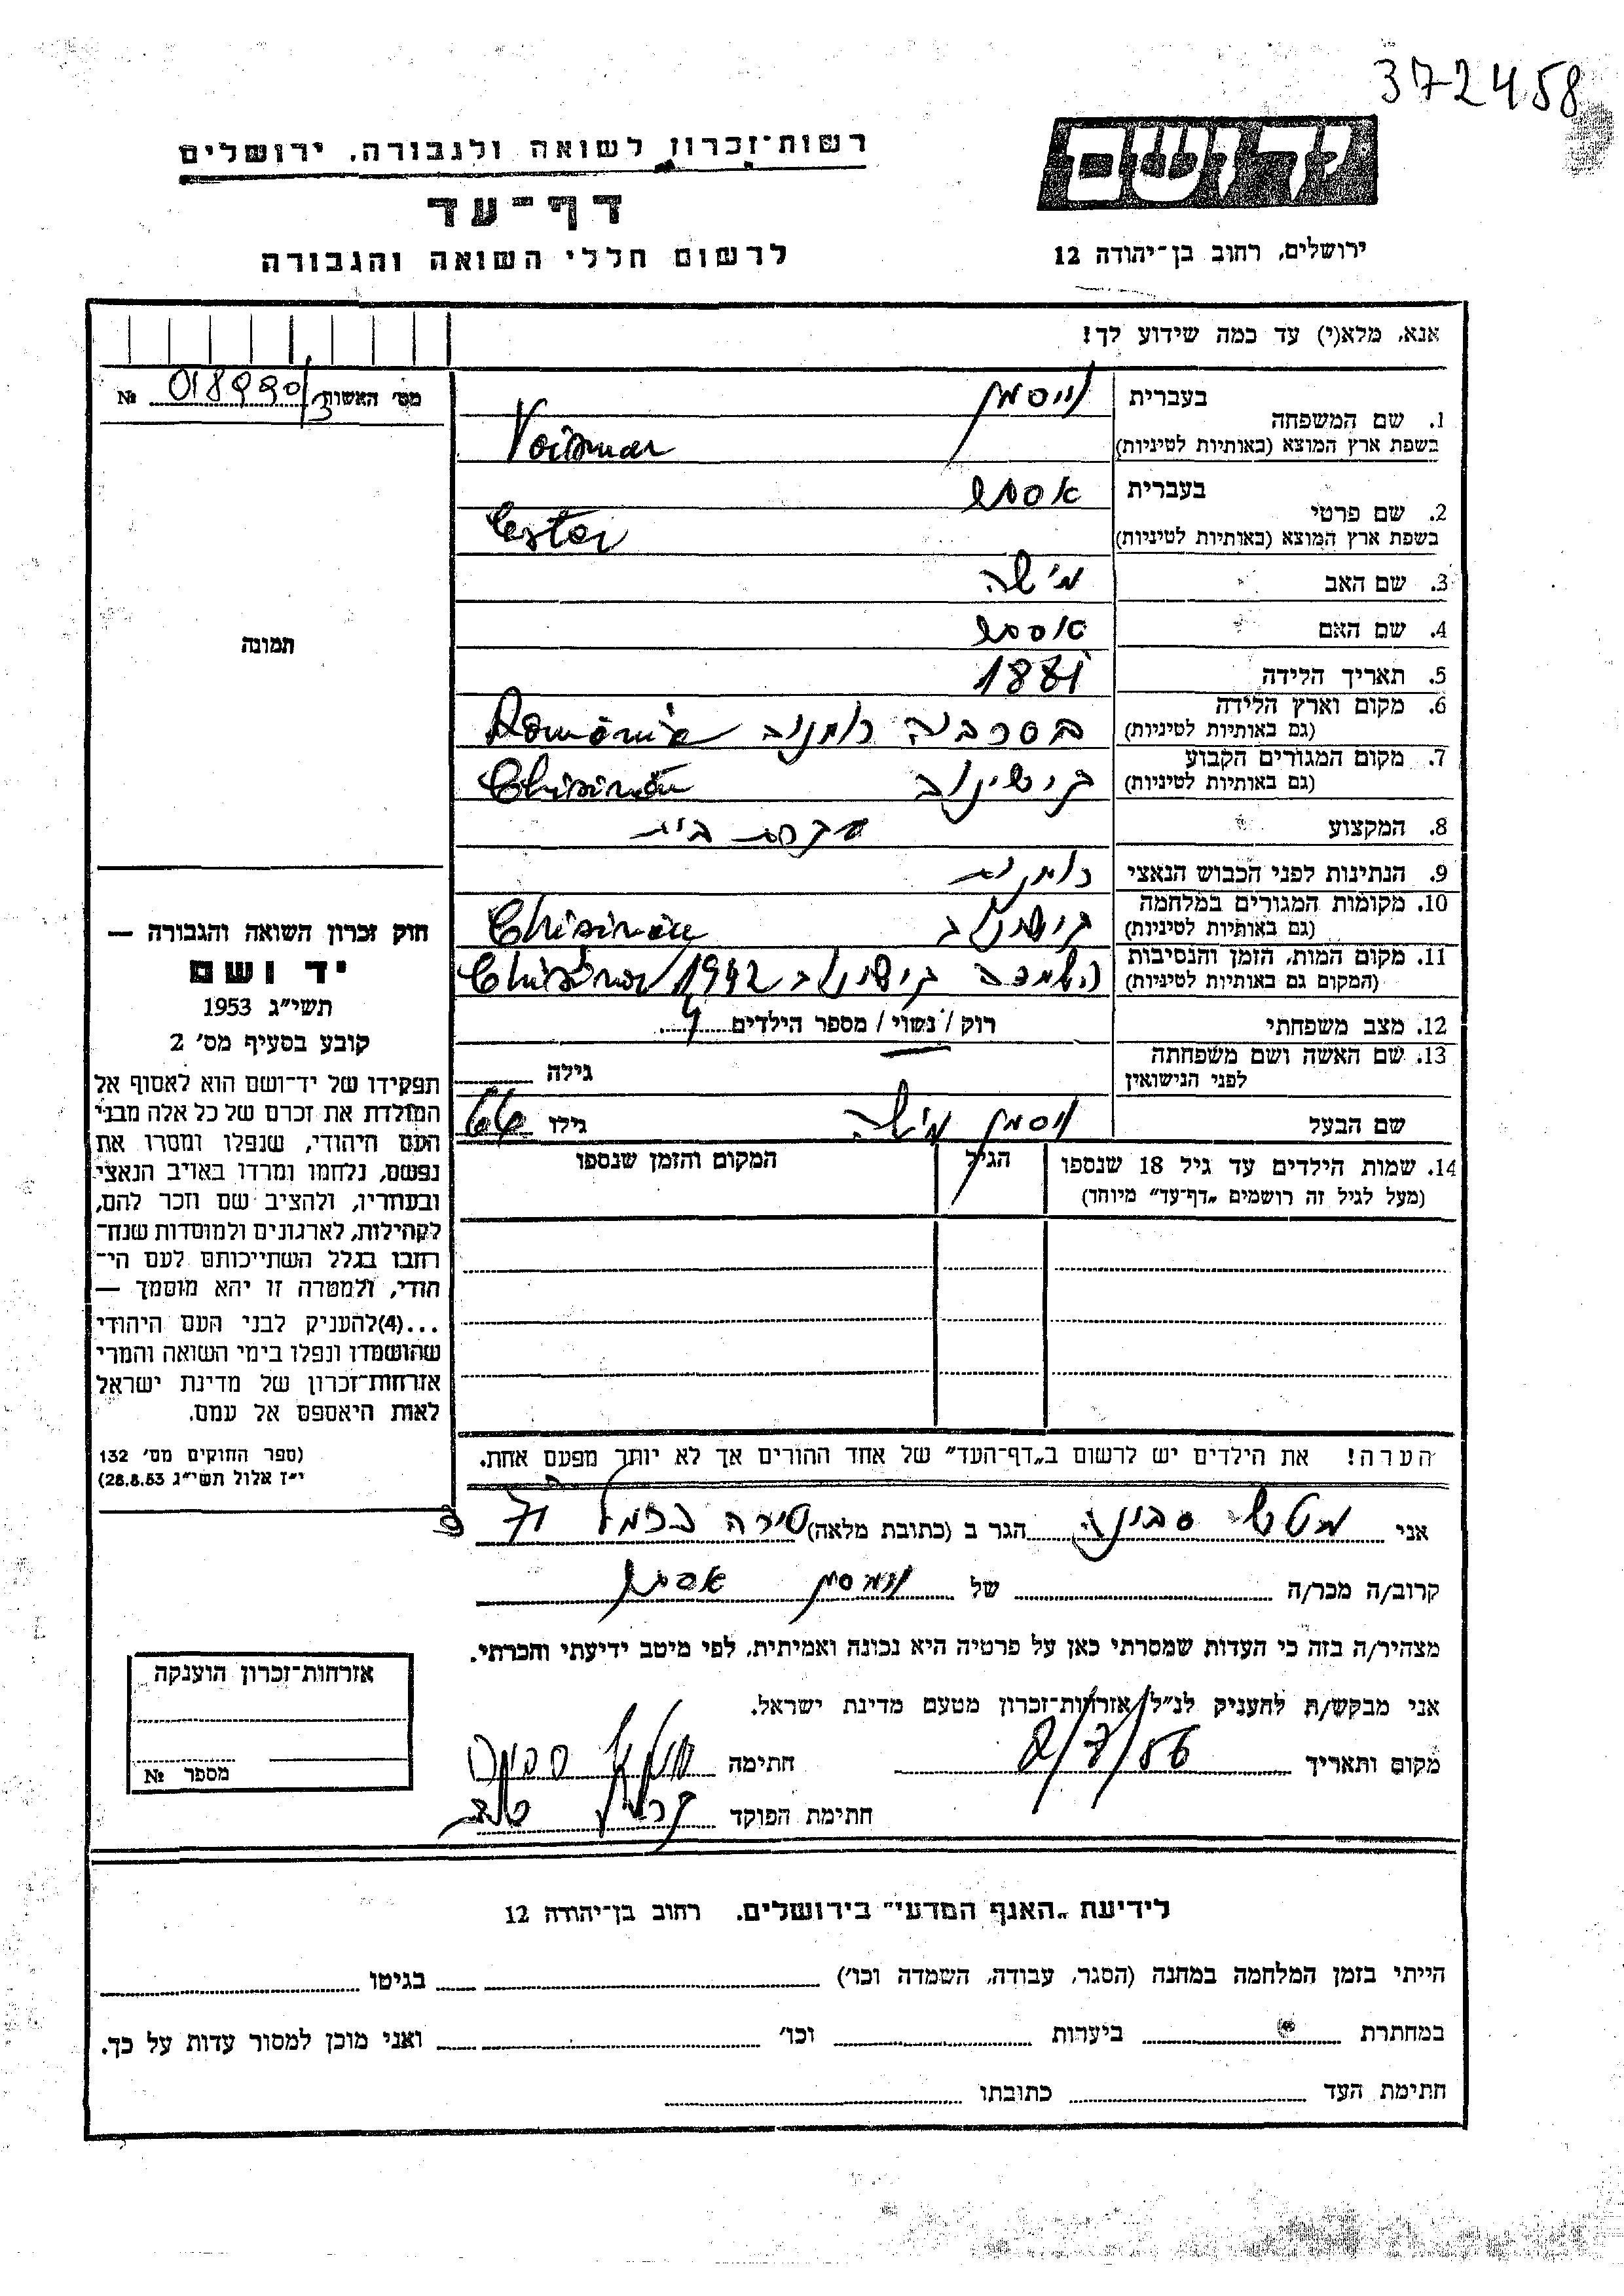 372458
רשות־זכרון לשואה ולגבורה, ירושלים
דף־עד
לרשום חללי השואה והגבורה
יד ושם
ירושלים, רחוב בן־יהודה 12
אנא, מלא(י) עד כמה שידוע לך!
מס' האשות № 018990/3
תמונה
1. שם המשפחה בעברית וייסמן
בשפת ארץ המוצא (באותיות לטיניות) Voisman
2. שם פרטי בעברית אסתר
בשפת ארץ המוצא (באותיות לטיניות) Ester
3. שם האב מישה
4. שם האם אסתר
5. תאריך הלידה 1881
6. מקום וארץ הלידה (גם באותיות לטיניות) בסרביה רומניה România
7. מקום המגורים הקבוע (גם באותיות לטיניות) קישינוב Chisinău
8. המקצוע עקרת בית
9. הנתינות לפני הכבוש הנאצי רומנית
10. מקומות המגורים במלחמה (גם באותיות לטיניות) קישנוב Chisinău
11. מקום המות, הזמן והנסיבות (המקום גם באותיות לטיניות) השמדה קישינוב 1942 Chisinău
12. מצב משפחתי רוק / נשוי / מספר הילדים 4
13. שם האשה ושם משפחתה לפני הנישואין גילה
שם הבעל וסמן מישה גילו 66
14. שמות הילדים עד גיל 18 שנספו הגיל המקום והזמן שנספו
(מעל לגיל זה רושמים „דף־עד” מיוחד)
הערה! את הילדים יש לרשום ב„דף־העד” של אחד ההורים אך לא יותר מפעם אחת.
חוק זכרון השואה והגבורה —
יד ושם
תשי״ג 1953
קובע בסעיף מס' 2
תפקידו של יד־ושם הוא לאסוף אל
המולדת את זכרם של כל אלה מבני
העם היהודי, שנפלו ומסרו את
נפשם, נלחמו ומרדו באויב הנאצי
ובעוזריו, ולהציב שם וזכר להם,
לקהילות, לארגונים ולמוסדות שנח־
רחבו בגלל השתייכותם לעם הי־
חודי, ולמטרה זו יהא מוסמך —
...(4)להעניק לבני העם היהודי
שהושמדו ונפלו בימי השואה והמרי
אזרחות־זכרון של מדינת ישראל
לאות היאספם אל עמם.
(ספר החוקים מס' 132
י״ז אלול תשי״ג 28.8.53)
אני סבינה הגר ב (כתובת מלאה) טירה כרמל
קרוב/ה מכר/ה של ויסמן אסתר
מצהיר/ה בזה כי העדות שמסרתי כאן על פרטיה היא נכונה ואמיתית, לפי מיטב ידיעתי והכרתי.
אני מבקש/ת להעניק לנ״ל אזרחות־זכרון מטעם מדינת ישראל.
מקום ותאריך 8/7/56 חתימה
חתימת הפוקד
אזרחות־זכרון הוענקה
מספר №
לידיעת „האגף המדעי” בירושלים, רחוב בן־יהודה 12
הייתי בזמן המלחמה במחנה (הסגר, עבודה, השמדה וכו') בגיטו
במחתרת ביערות וכו' ואני מוכן למסור עדות על כך.
חתימת העד כתובתו